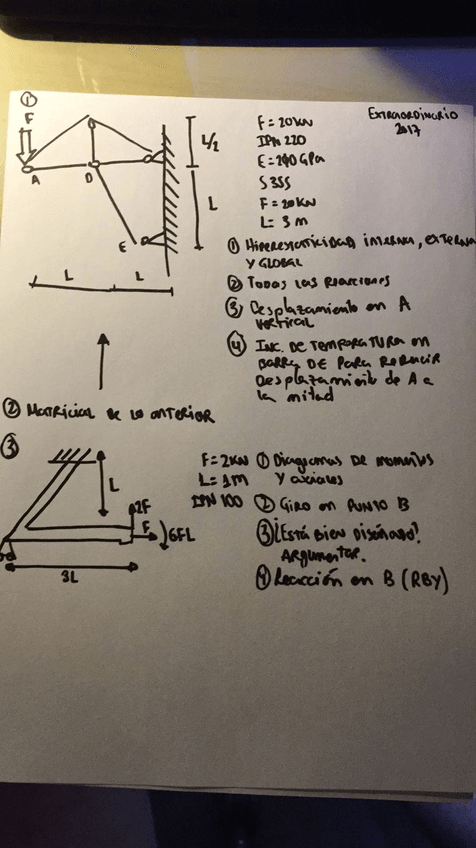 EXTRAORDINARIO
2017
①
F
A
D
E
L/2
L
L
L
F = 20KN
IPN 220
E = 210 GPa
S355
F = 20KN
L = 3 m
① Hiperestaticidad interna, externa
Y GLOBAL
② Todas las Reacciones
③ Desplazamiento en A
vertical
④ INC. DE TEMPERATURA en
BARRA DE PARA REDUCIR
Desplazamiento de A a
la mitad
② MATRICIAL DE LO ANTERIOR
③
L
2F
F
6FL
3L
F = 2KN
L = 1M
IPN 100
① Diagramas DE momentos
Y axiales
② Giro en PUNTO B
③ ¿ESTÁ BIEN DISEÑADO?
Argumentar.
④ Reacción en B (RBY)